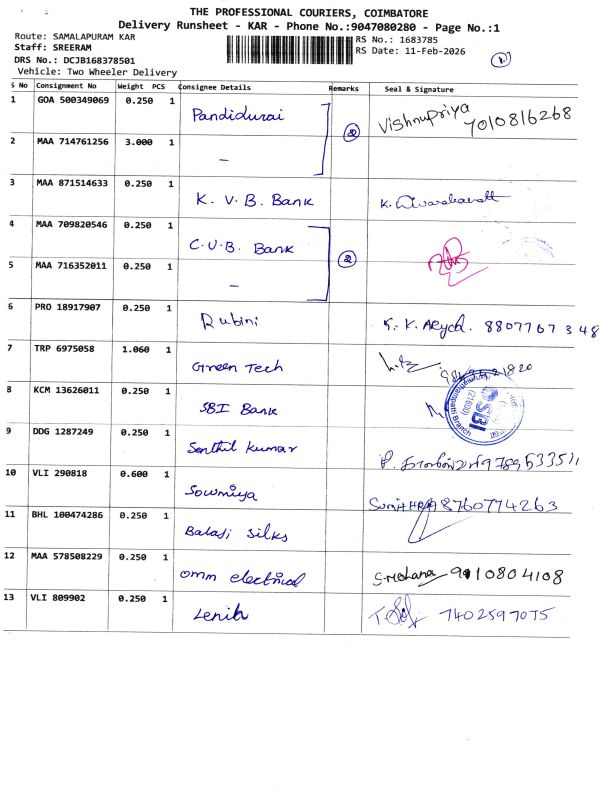 THE PROFESSIONAL COURIERS, COIMBATORE
Delivery Runsheet - KAR - Phone No.:9047080280 - Page No.:1
Route: SAMALAPURAM KAR
RS No.: 1683785
Staff: SREERAM
RS Date: 11-Feb-2026
DRS No.: DCJB168378501
Vehicle: Two Wheeler Delivery
S No Consignment No Weight PCS Consignee Details Remarks Seal & Signature
1 GOA 500349069 0.250 1 Pandidurai Vishnupriya 7010816268
2 MAA 714761256 3.000 1 –
2
3 MAA 871514633 0.250 1 K. V. B. Bank
4 MAA 709820546 0.250 1 C.U.B. Bank
5 MAA 716352011 0.250 1 –
2
6 PRO 18917907 0.250 1 Rubini 8807767348
7 TRP 6975058 1.060 1 Green Tech
8 KCM 13626011 0.250 1 SBI Bank SBI Branch
9 DDG 1287249 0.250 1 Senthil Kumar
10 VLI 290818 0.600 1 Sowmiya 8760774263
11 BHL 100474286 0.250 1 Balaji Silks
12 MAA 578508229 0.250 1 Omm electrical S.Mohana 9010804108
13 VLI 809902 0.250 1 Lenin 7402597075